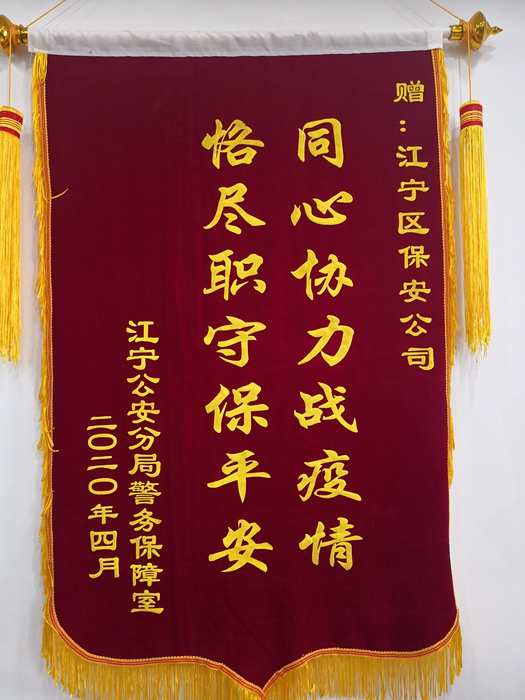 赠:江宁区保安公司
同心协力战疫情
恪尽职守保平安
江宁公安分局警务保障室
二〇二〇年四月